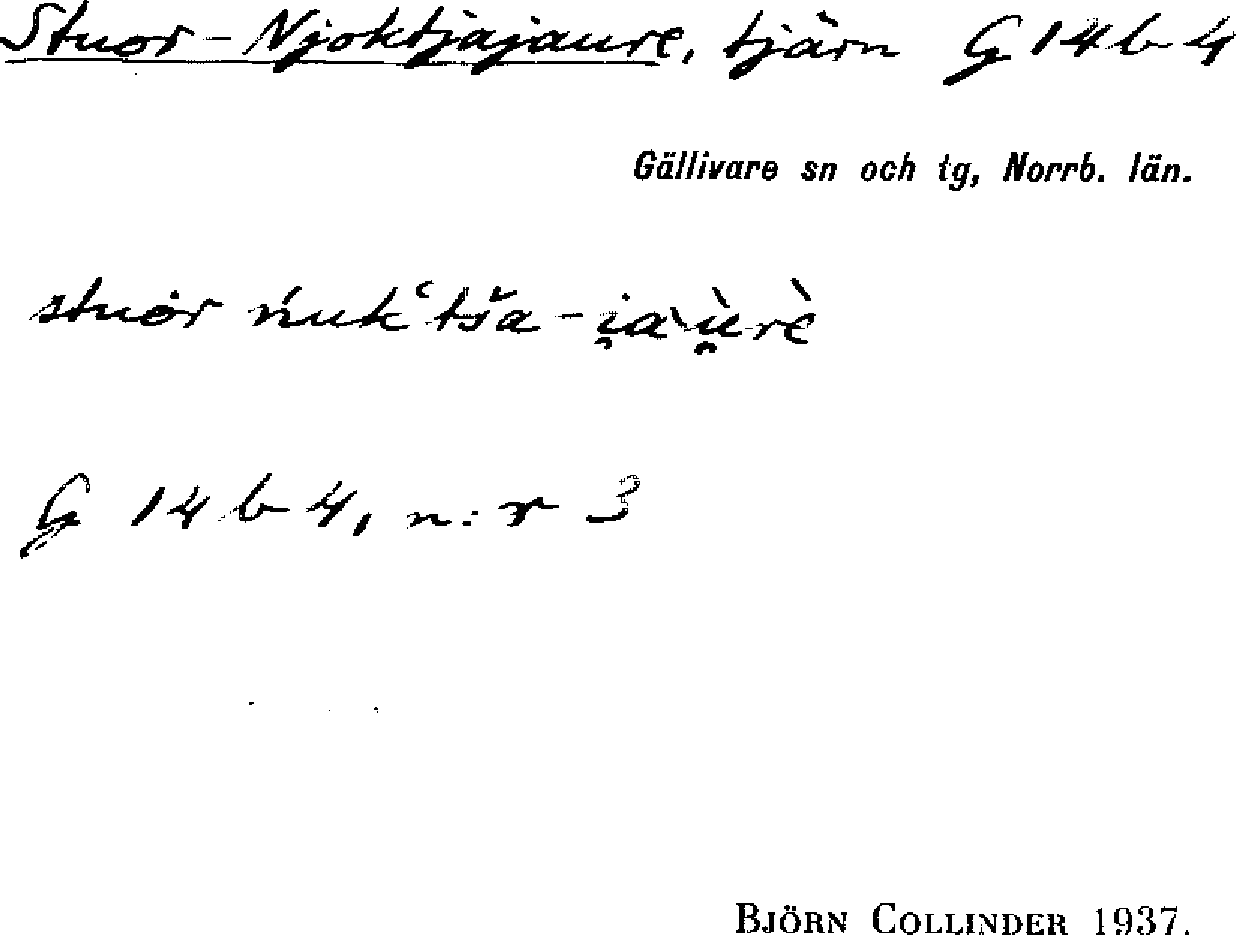 Stuor-Njoktjajaure, tjärn G 14 b 4
Gällivare sn och tg, Norrb. län.
stuȯr ńukʿtša-i̯aˋù̯rè
G 14 b 4, n:r 3
BJÖRN COLLINDER 1937.